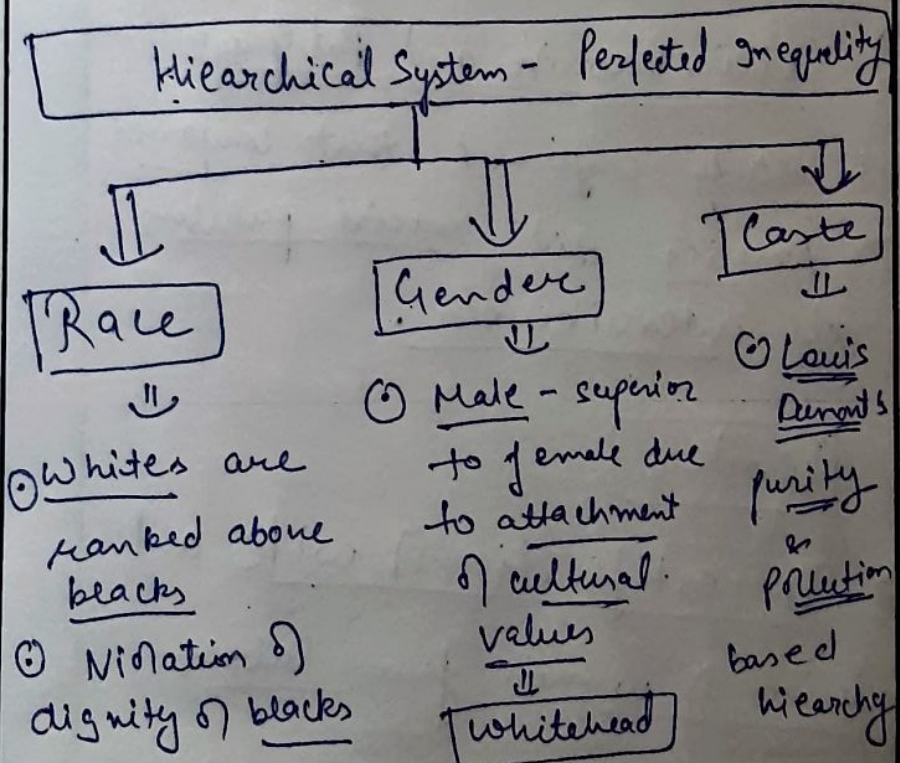 Hiearchical System - Perfected Inequality
Race
Whites are
ranked above
blacks
Violation of
dignity of blacks
Gender
Male - superior
to female due
to attachment
of cultural
values
Whitehead
Caste
Louis
Dumont's
purity
&
pollution
based
hiearchy